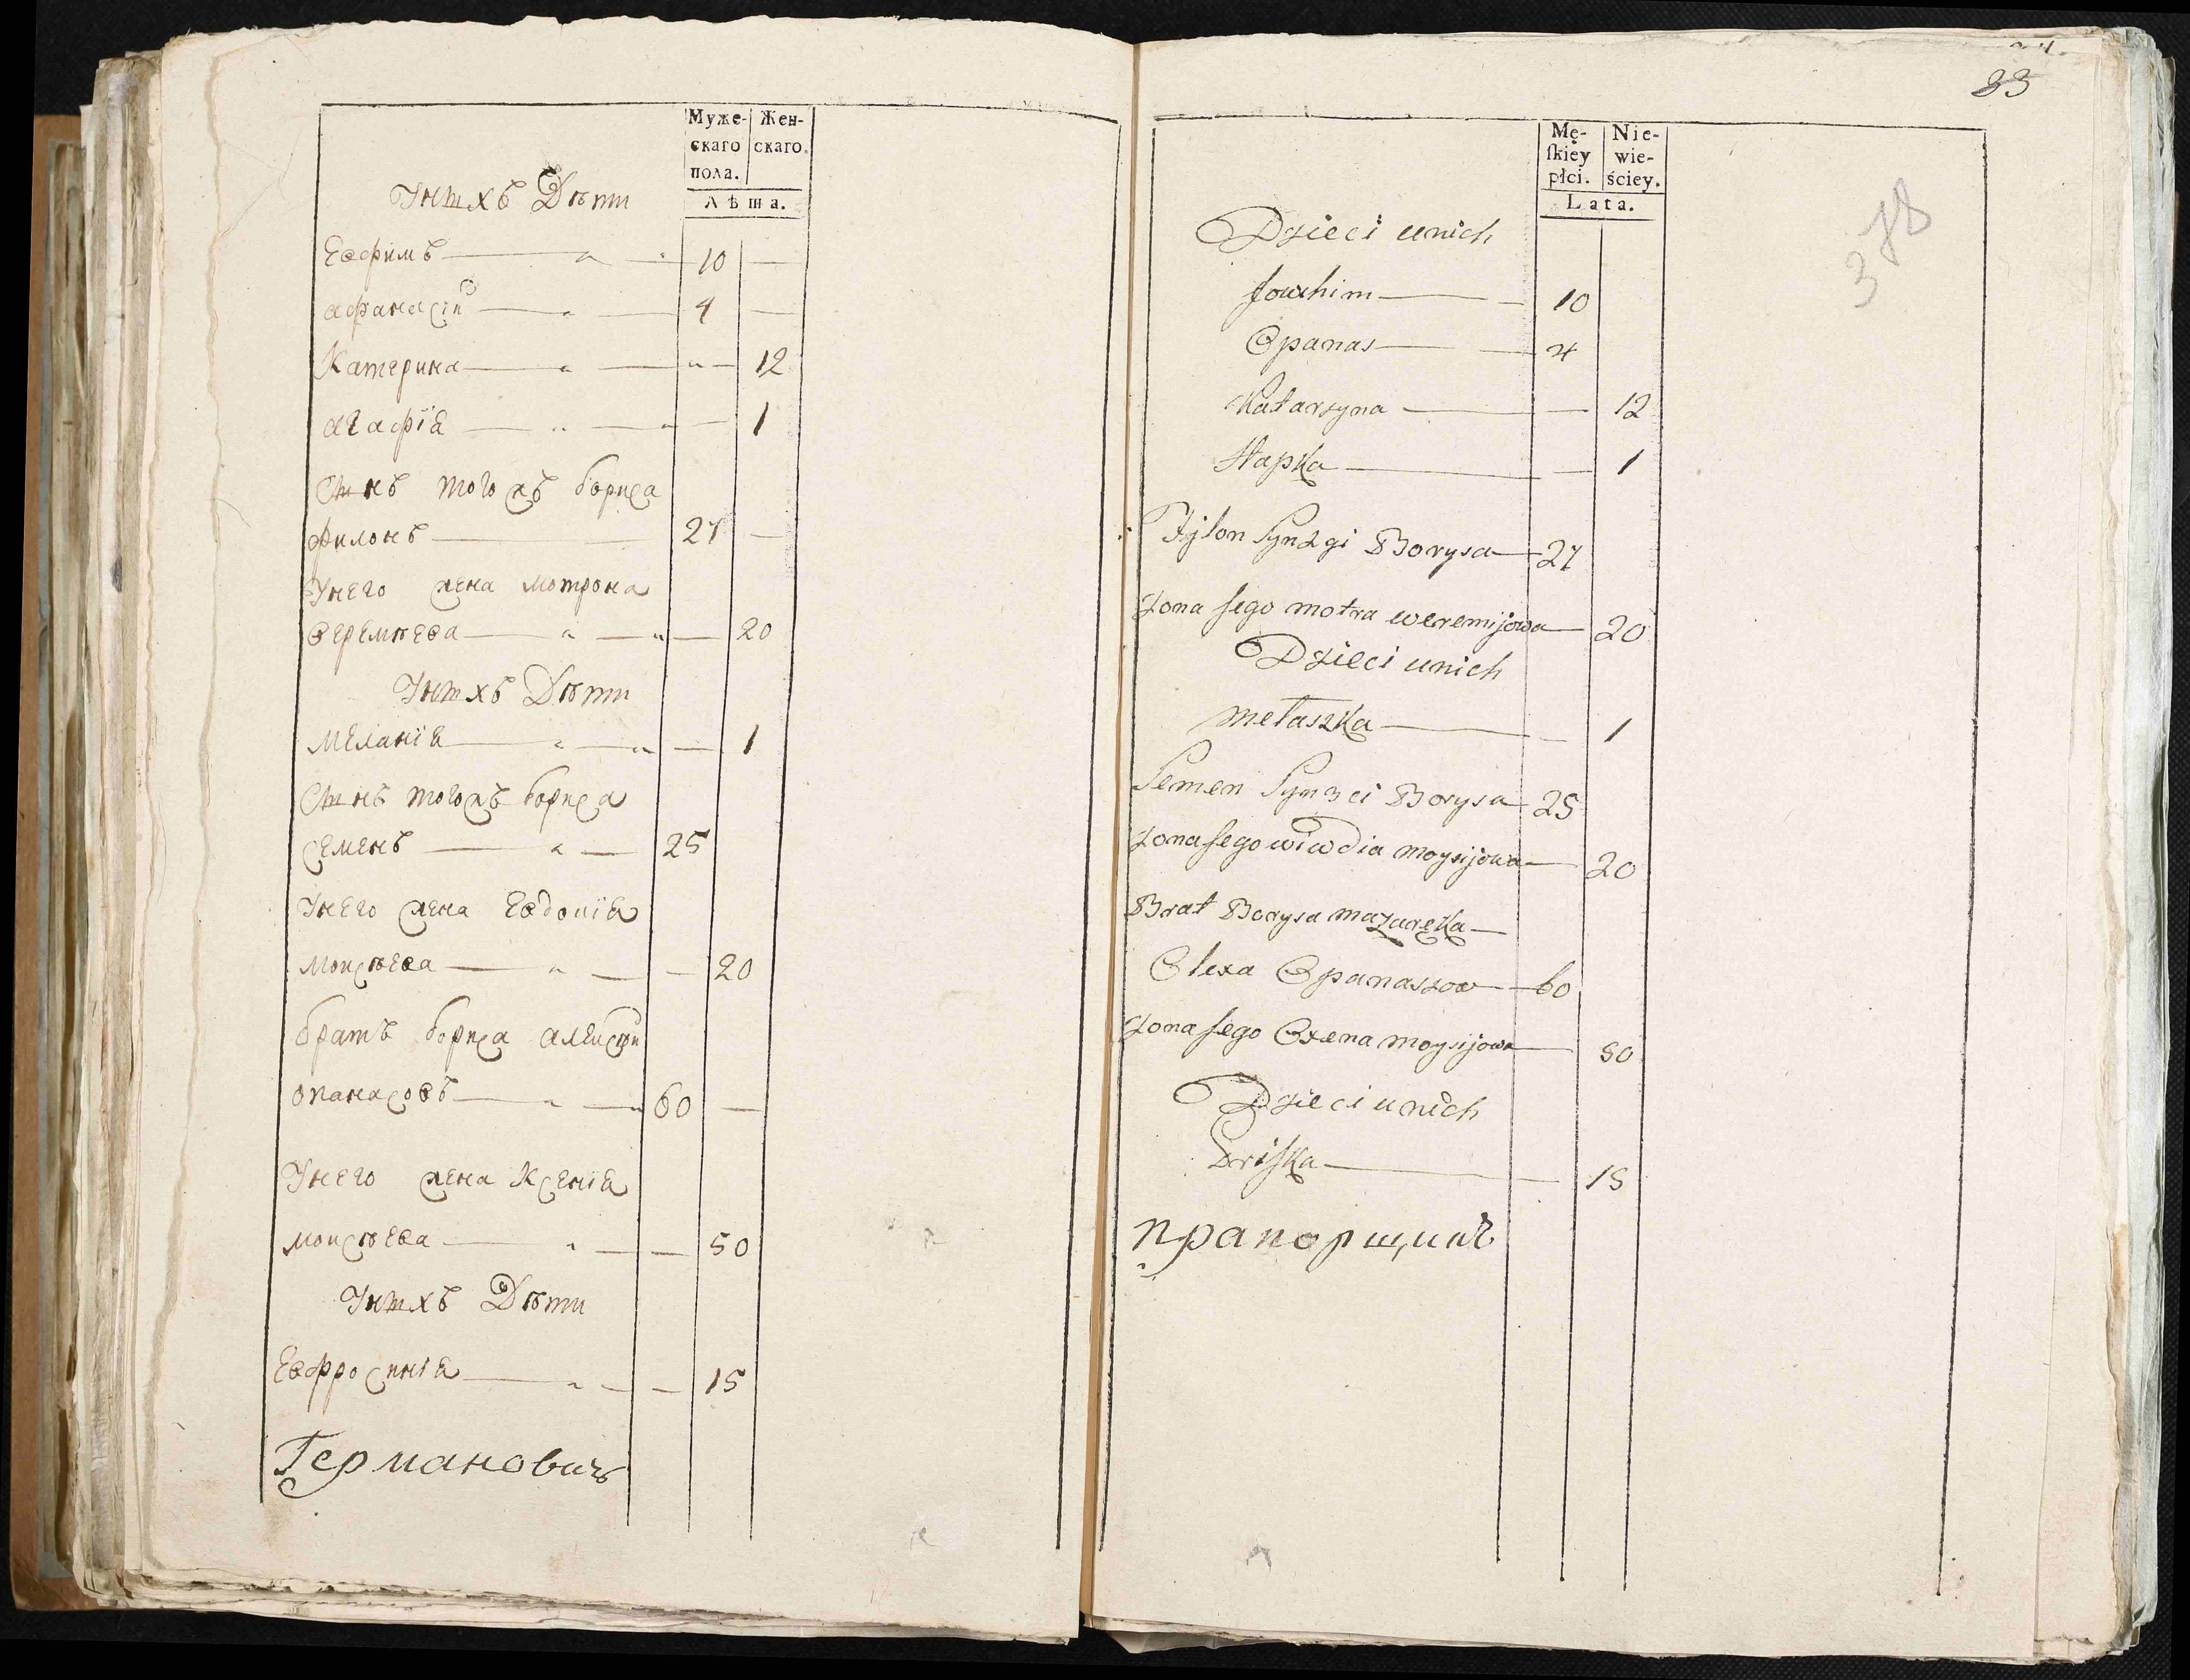 Муже- Жен-
скаго скаго.
пола.
Лѣта.
Унихъ Дѣти
Евфимъ 10
афанасіи 4
Катерина 12
агафіа 1
Сынъ тогожъ бориса
филонъ 27
Унего жена мотрона
веремѣева 20
Унихъ Дѣти
меланіа 1
Сынъ тогожъ бориса
семенъ 25
Унего жена Евдокіа
моисѣева 20
братъ бориса алексѣи
опанасовъ 60
Унего жена Ксеніа
моисѣева 50
Унихъ Дѣти
Евфросиніа 15
Германовичъ
33
Mę- Nie-
ſkiey wie-
płci. ściey.
Lata.
378
Dzieci unich
Jowchim 10
Opanas 4
Katarzyna 12
Hapka 1
Fylon Syn 2gi Borysa 27
Zona jego motra weremijowa 20
Dzieci unich
melaszka 1
Semen Syn 3ci Borysa 25
Zona jego wiwdia moysijowa 20
Brat Borysa
Olexa Opanaszow 60
Zona jego Oxena moysijowa 50
Dzieci unich
Priska 15
прапорщикъ